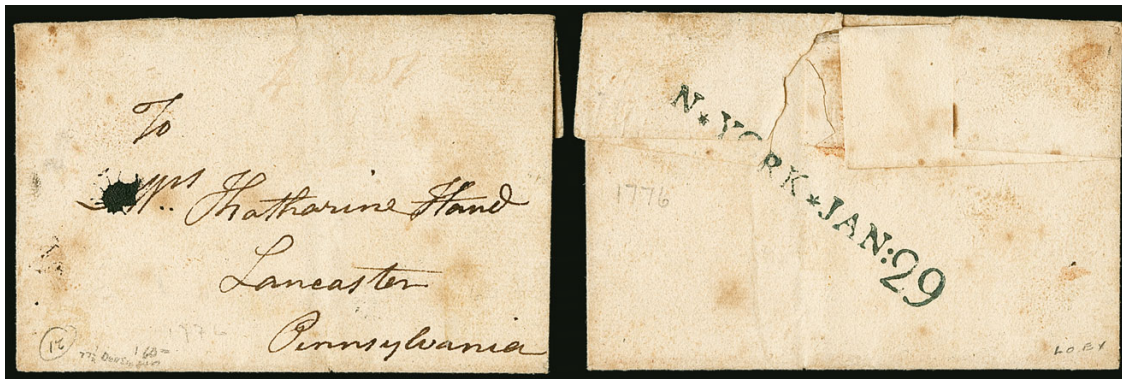 To
Mrs Khatharine Hand
Lancaster
Pennsylvania
1776
N*YORK*JAN:29
1776